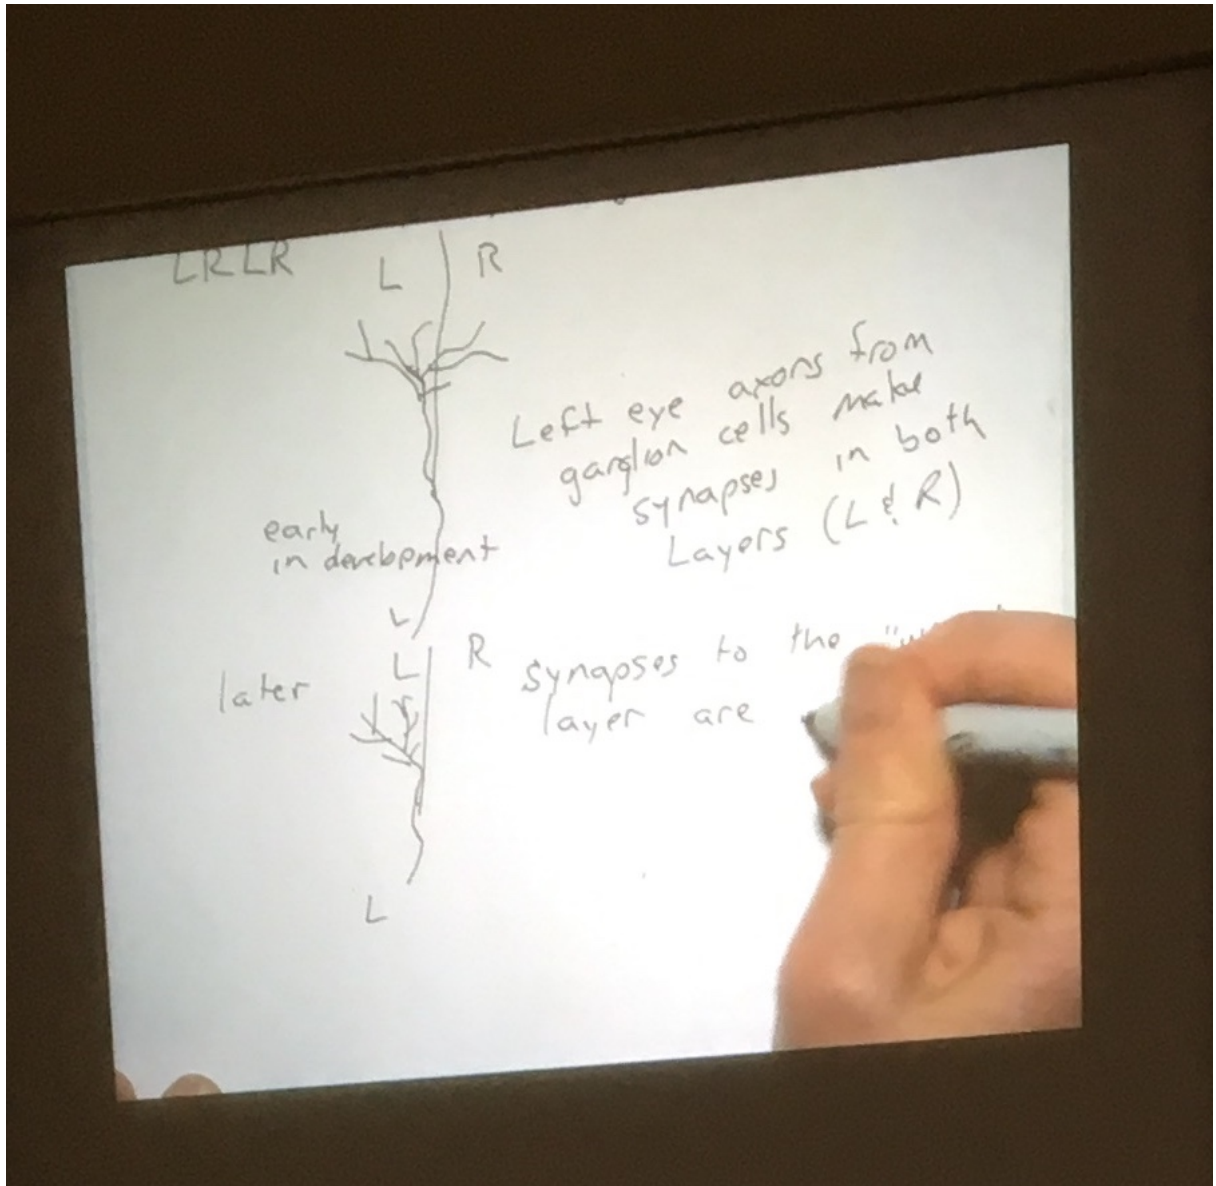 LRLR
L R
Left eye axons from
ganglion cells make
synapses in both
Layers (L & R)
early
in development
L
L R
later
synapses to the
layer are
L